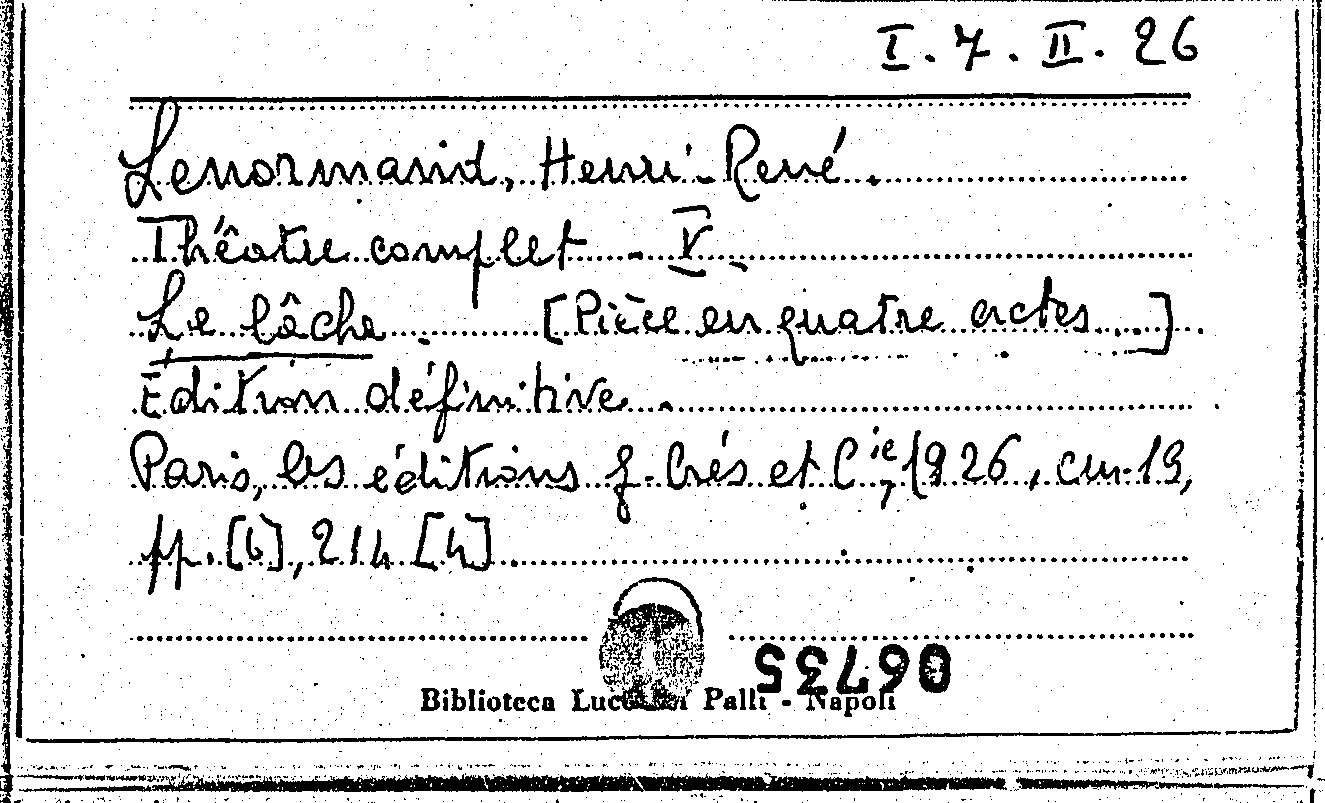 I. 7. II. 26
Lenormand, Henri-René.
Théatre complet - V -
Le lâche. [Pièce en quatre actes...]
Edition définitive.
Paris, les éditions g. Crés et Cie, 1926, cm. 19,
pp. [6], 214 [4].
06735
Biblioteca Lucchesi Palli - Napoli